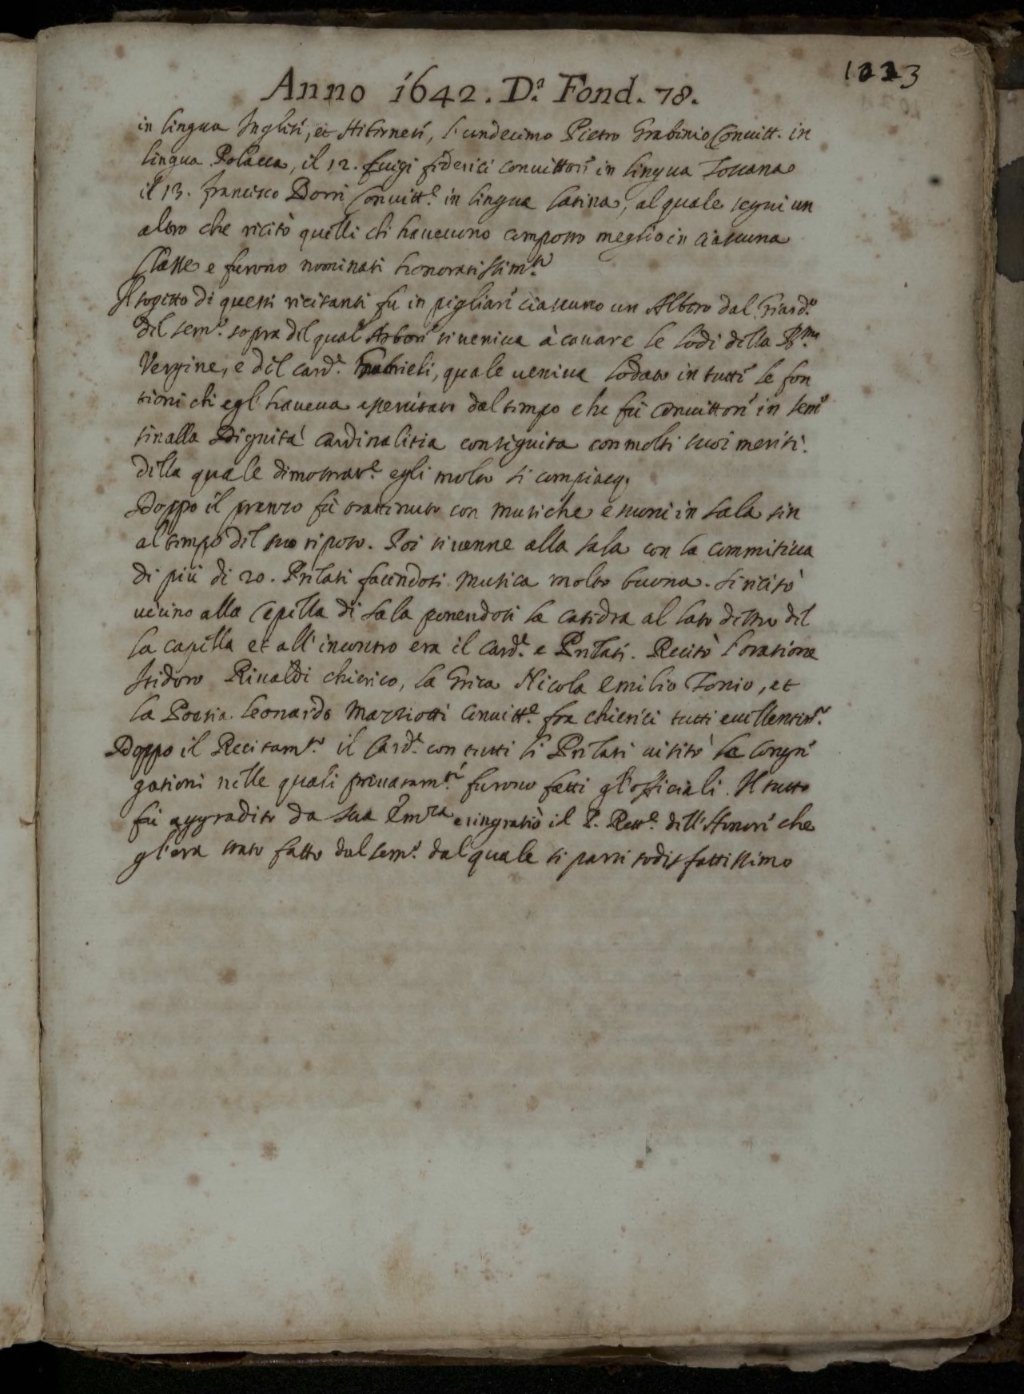 1223
Anno 1642. D.ª Fond. 78.
in lingua Inglese, et Hibernese, l'undecimo Pietro Grabinio Convitt. in
lingua Polacca, il 12. Luigi Federici convittore in lingua Toscana
il 13. Francisco Dorri Convitt.e in lingua latina, al quale seguì un
altro che recitò quelli che havevano composto meglio in ciascuna
Classe e furono nominati honoratissim.te
Il sogetto di questi recitanti fu in pigliare ciascuno un Albero dal Giard.o
del sem.o sopra del quale Arbore si veniva à cavare le lodi della B.ma
Vergine, e del Card.e Gabrieli, quale veniva lodato in tutte le fon
tioni che egli haveva esercitato dal tempo che fù convittore in sem.o
sin alla Dignità Cardinalitia conseguita con molti suoi meriti.
della quale dimostrat.e egli molto si compiacq.
Doppo il pranzo fù trattenuto con musiche e suoni in sala sin
al tempo del suo riposo. Poi si venne alla sala con la commitiva
di più di 20. Prelati facendosi musica molto buona. Si recitò
vicino alla Capella di sala ponendosi la catedra al lato destro del
la capella et all'incontro era il Card.e e Prelati. Recitò l'oratione
Isidoro Rinaldi chierico, la Greca Nicola Emilio Tonio, et
la Poesia Leonardo Mazziotti Convitt.e fra chierici tutti eccellentem.e
Doppo il Recitam.to il Card.e con tutti li Prelati visitò le Congre
gationi nelle quali privatam.te furono fatti gl'officiali. Il tutto
fù aggradito da sua Em.za e ringratiò il P. Rett.e dell'Honore che
gl'era stato fatto dal sem.o dal quale si partì sodisfattissimo